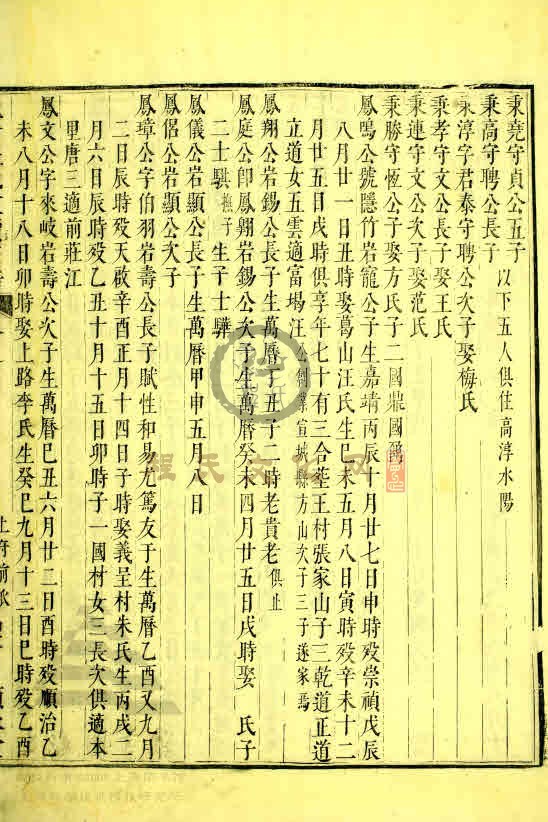 秉堯守貞公五子以下五人俱住高淳水陽
秉高守聘公長子
秉淳字君泰守聘公次子娶梅氏
秉孝守文公長子娶王氏
秉連守文公次子娶范氏
秉勝守恆公子娶方氏子二國鼎國
鳳鳴公號隱竹岩寵公子生嘉靖丙辰十月廿七日申時歿崇禎戊辰
八月廿一日丑時娶葛山汪氏生己未五月八日寅時歿辛未十二
月廿五日戌時俱享年七十有三合塟王村張家山子三乾道正道
立道女五雲適富堨汪公創業宣城縣方山次子三子遂家焉
鳳翔公岩錫公長子生萬曆丁丑子二時老貴老俱止
鳳庭公卽鳳翺岩錫公次子生萬曆癸未四月廿五日戌時娶 氏子
二士騏撫子生子士驊
鳳儀公岩顯公長子生萬曆甲申五月八日
鳳侶公岩顯公次子
鳳璋公字伯羽岩壽公長子賦性和易尤篤友于生萬曆乙酉又九月
二日辰時歿天啟辛酉正月十四日子時娶義呈村朱氏生丙戌二
月六日辰時歿乙丑十月十五日卯時子一國材女三長次俱適本
里唐三適前莊江
鳳文公字來岐岩壽公次子生萬曆己丑六月廿二日酉時歿順治乙
未八月十八日卯時娶上路李氏生癸巳九月十三日巳時歿乙酉